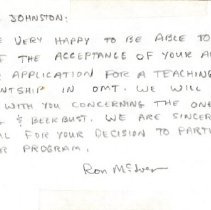 JOHNSTON:
E VERY HAPPY TO BE ABLE TO
F THE ACCEPTANCE OF YOUR A
APPLICATION FOR A TEACHING
NTSHIP IN OMT. WE WILL
WITH YOU CONCERNING THE ONE
& BEERBUST. WE ARE SINCER
L FOR YOUR DECISION TO PARTI
R PROGRAM.
Ron